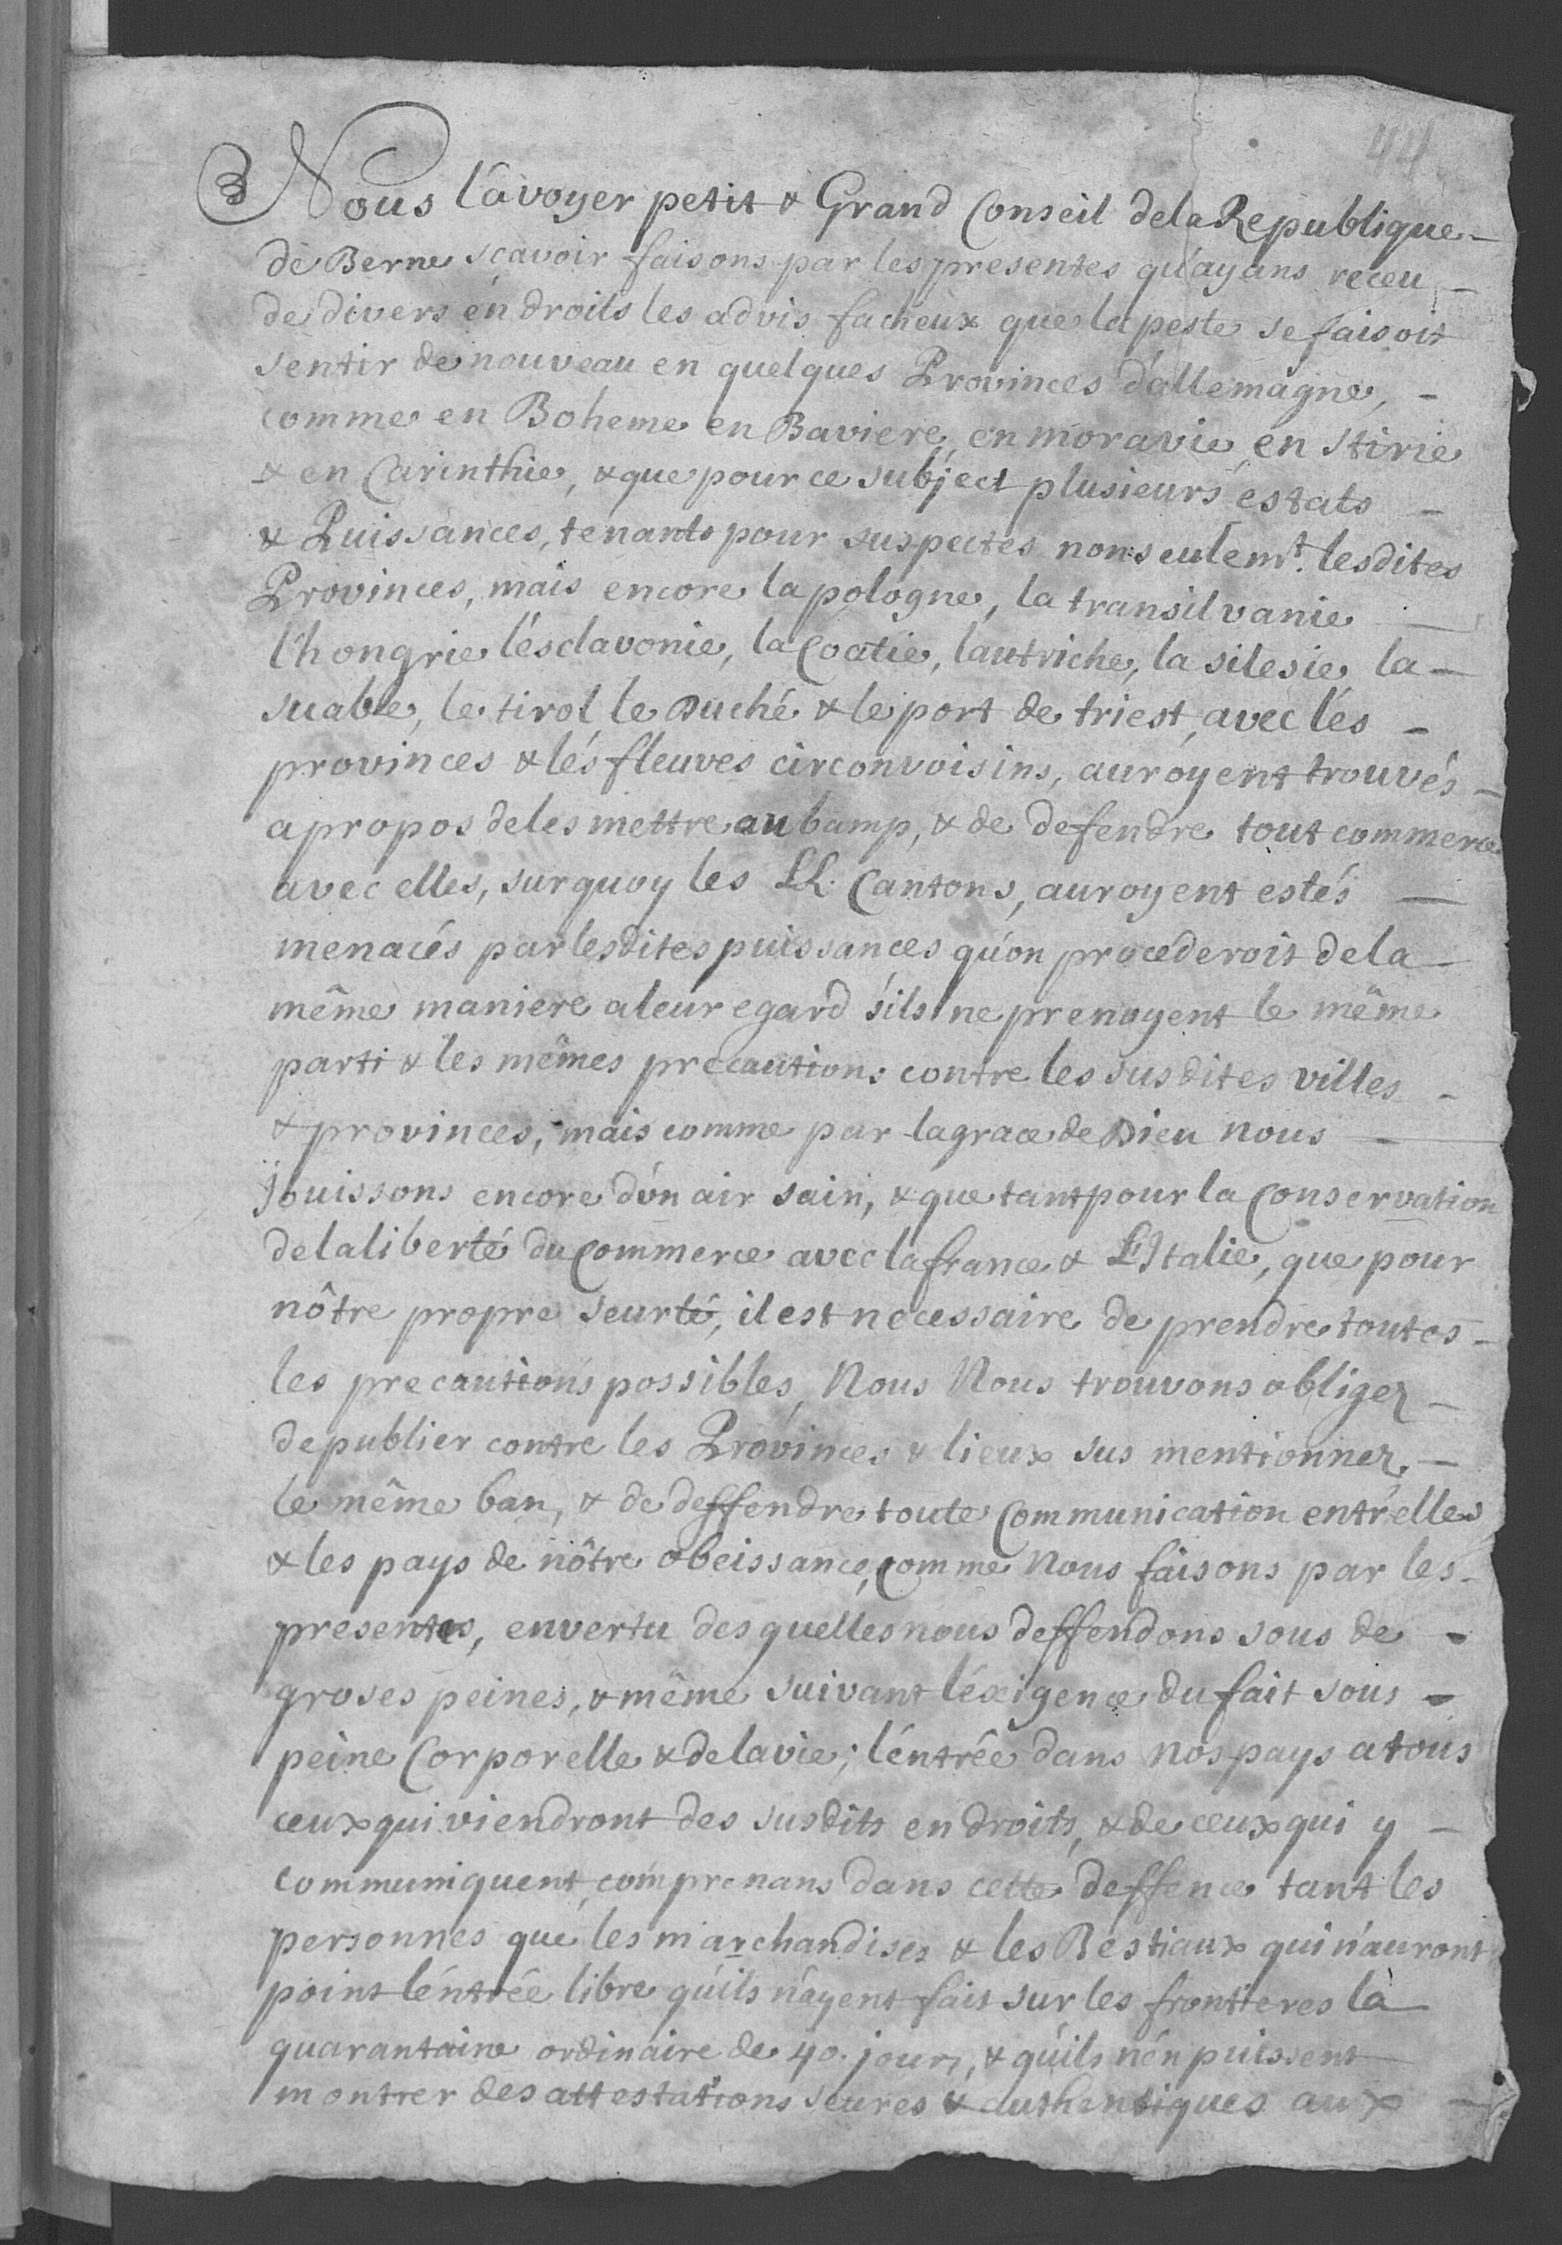 44
Nous l'avoyer petit & Grand Conseil dela Republique
de Berne scavoir faisons par les presentes qu'ayans receu
de divers endroits les advis facheux que la peste se faisoit
sentir de nouveau en quelques Provinces d'allemagne,
comme en Boheme en Baviere, en moravie, en Stirie
& en Carinthie, & que pour ce subject plusieurs estats
& Puissances, tenants pour suspectes non seulemt. lesdites
Provinces, mais encore la pologne, la transilvanie
l'hongrie l'ésclavonie, la Coatie, lautriche, la silesie la
suabe, le tirol le Duché & le port de triest, avec lés
provinces & lés fleuves circonvoisins, auroyent trouvés
apropos deles mettre au bamp, & de defendre tout commerce
avec elles, surquoy les LL. Cantons, auroyent estés
menacés par lesdites puissances qu'on procederoit dela
même maniere aleur egard s'ils ne prenoyent le même
parti & les mêmes precautions contre les susdites villes
& provinces, mais comme par la grace de Dieu nous
Jouissons encore d'ún air sain, & que tant pour la Conservation
dela liberté du Commerce avec la france & L'Italie, que pour
nôtre propre seurté, il est necessaire de prendre toutes
les precautions possibles, Nous Nous trouvons obligez
de publier contre les Provinces & lieux sus mentionnez
le même ban, & de deffendre toute Communication entr'elles
& les pays de nôtre obeissance, comme Nous faisons par les
presentes, envertu desquelles nous deffendons sous de
groses peines, & même suivant l'éxigence du fait sous
peine Corporelle & dela vie; l'éntrêe dans Nos pays a tous
ceux qui viendront des susdits endroits, & de ceux qui y
communiquent, comprenans dans cette deffence tant les
personnes que les marchandises & les Bestiaux qui n'auront
point l'éntrée libre qu'ils n'ayent fait sur les frontieres la
quarantaine ordinaire de 40. jours, & qu'ils n'én puissent
montrer des attestations seures & authentiques aux